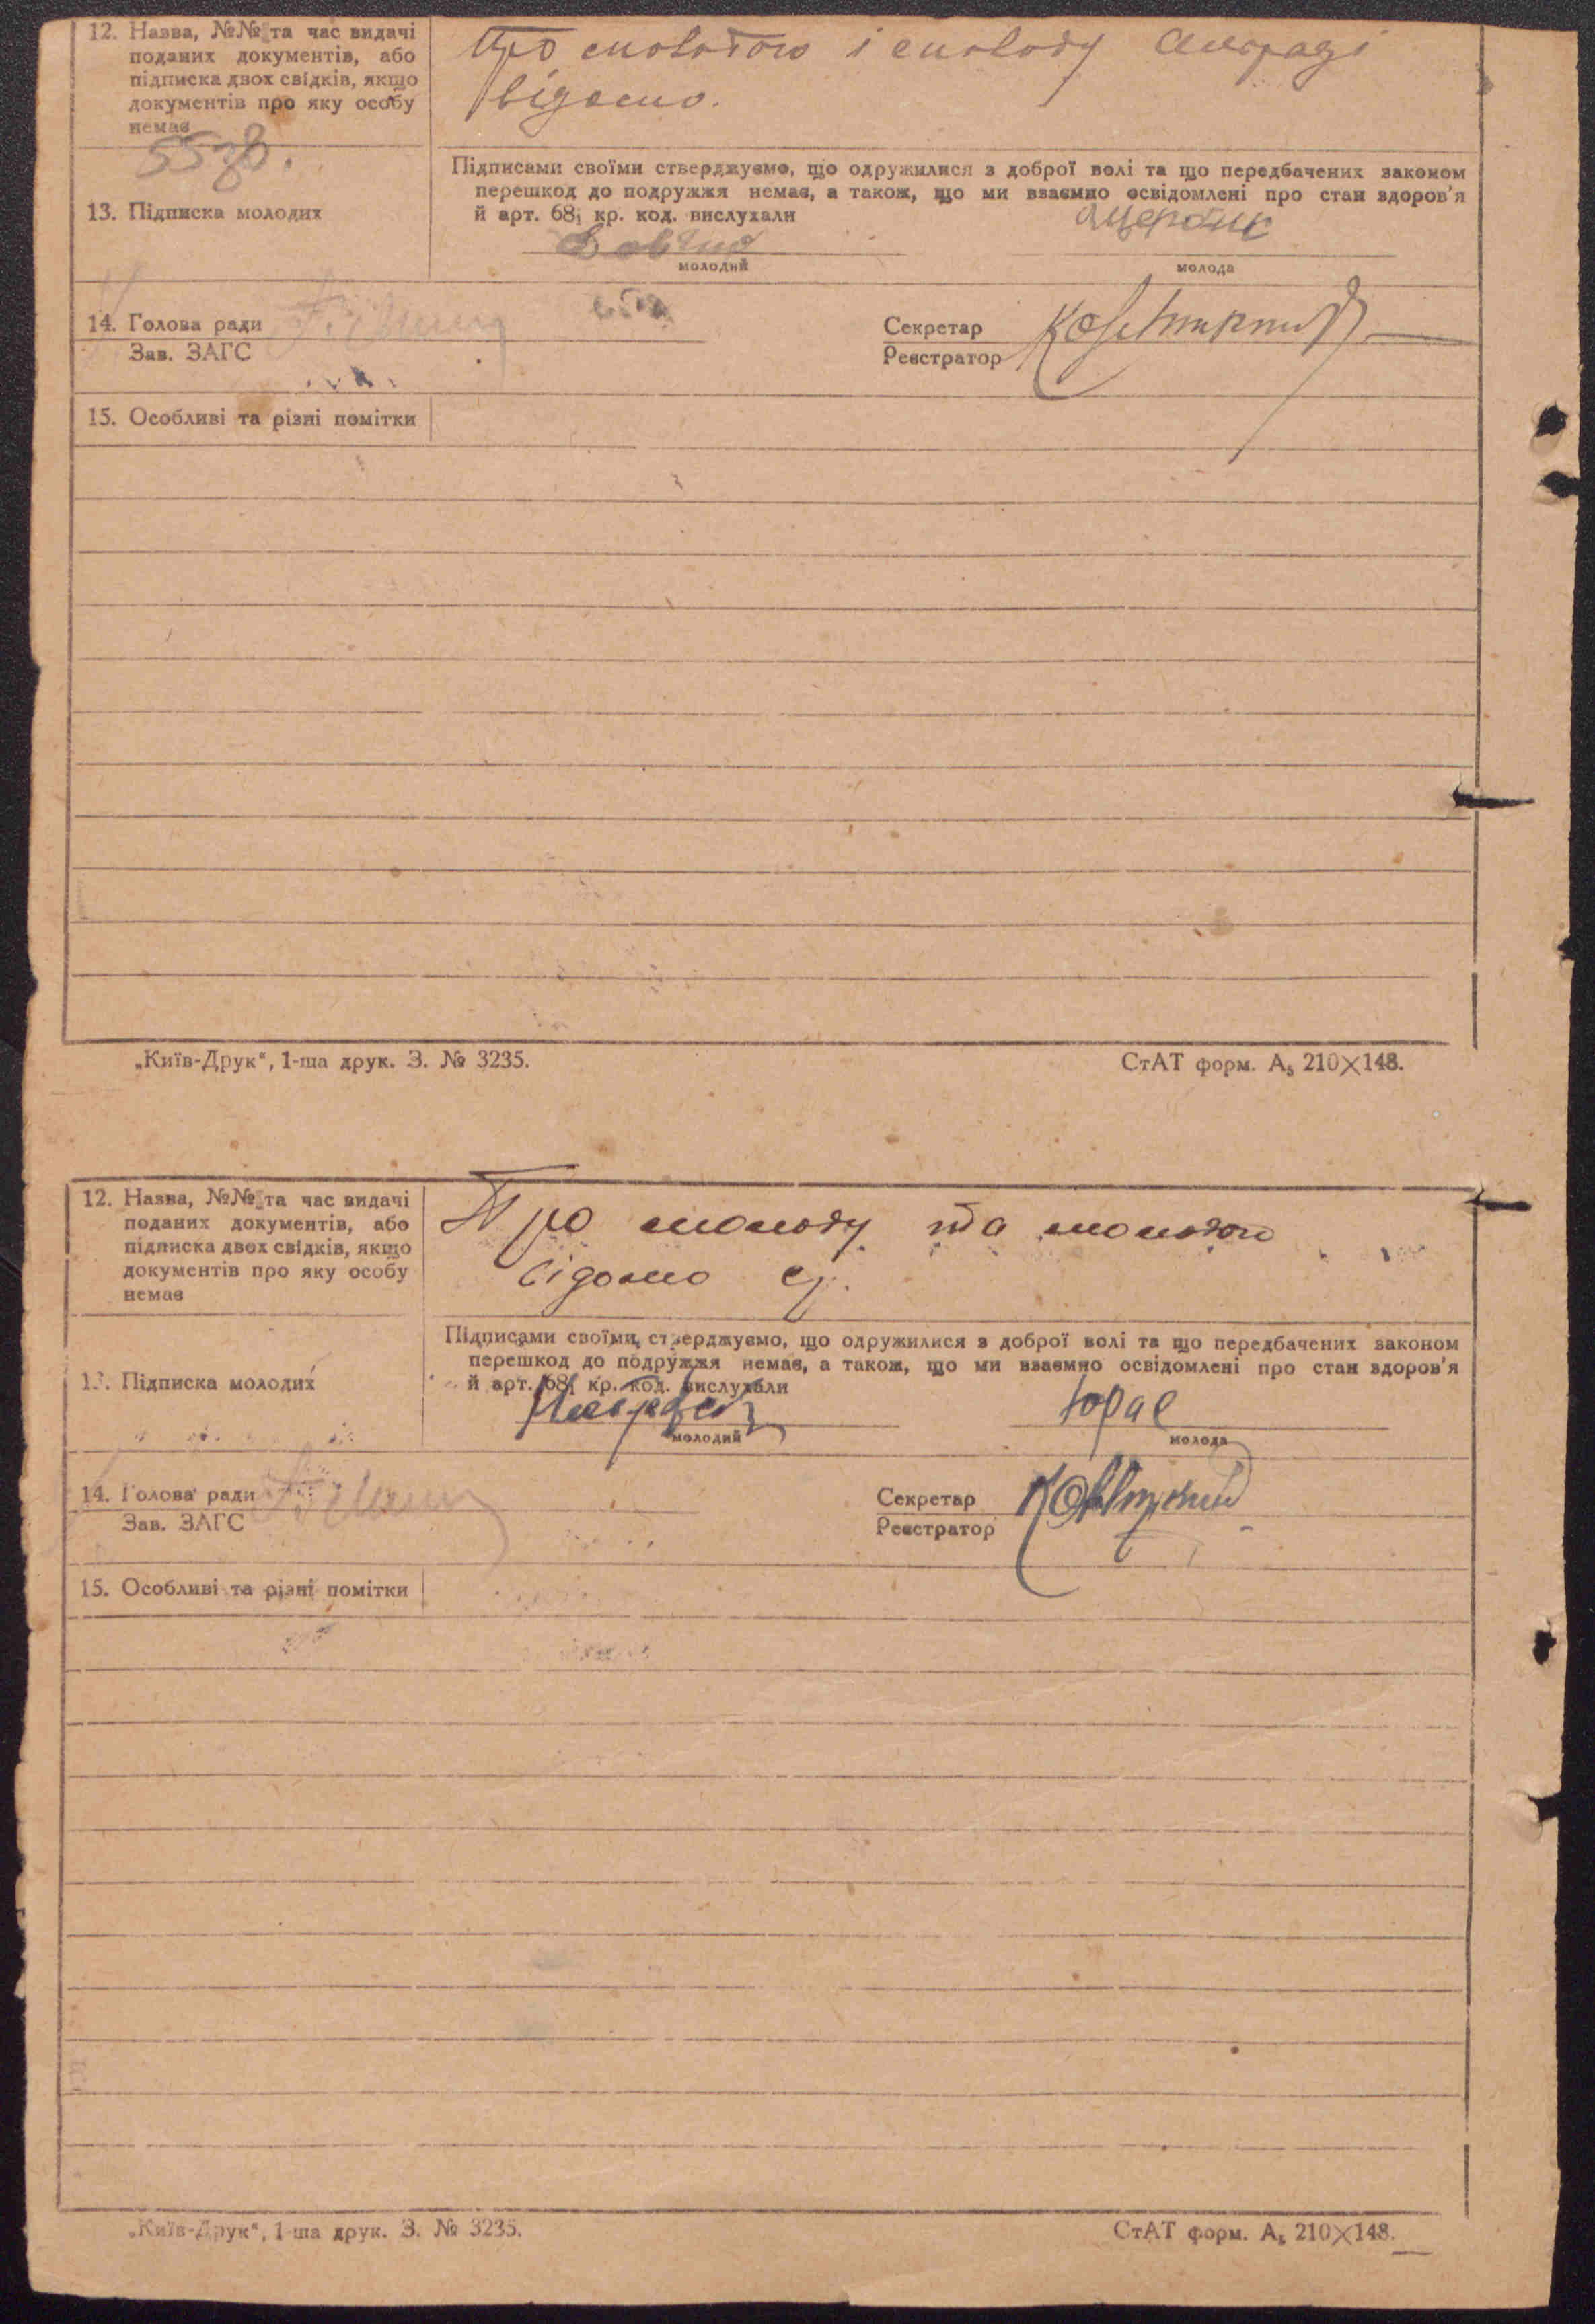 12. Назва, №№ та час видачі
поданих документів, або
підписка двох свідків, якщо
документів про яку особу
немає
Про молодого і молоду
відомо.
55зв.
Підписами своїми стверджуємо, що одружилися з доброї волі та що передбачених законом
перешкод до подружжя немає, а також, що ми взаємно освідомлені про стан здоров'я
й арт. 68₁ кр. код. вислухали
13. Підписка молодих
молодий
молода
14. Голова ради
Зав. ЗАГС
Секретар
Реєстратор
15. Особливі та різні помітки
„Київ-Друк“, 1-ша друк. З. № 3235.
СтАТ форм. А₅ 210×148.
12. Назва, №№ та час видачі
поданих документів, або
підписка двох свідків, якщо
документів про яку особу
немає
Про молоду та молодого
відомо
Підписами своїми стверджуємо, що одружилися з доброї волі та що передбачених законом
перешкод до подружжя немає, а також, що ми взаємно освідомлені про стан здоров'я
й арт. 68₁ кр. код. вислухали
13. Підписка молодих
молодий
молода
14. Голова ради
Зав. ЗАГС
Секретар
Реєстратор
15. Особливі та різні помітки
„Київ-Друк“, 1-ша друк. З. № 3235.
СтАТ форм. А₅ 210×148.